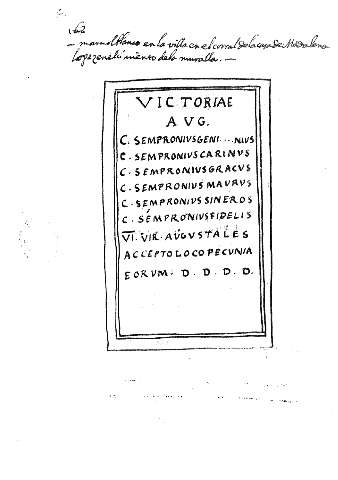 marmol blanco en la villa en el corral de la casa de Madalena
Lopez en el cimiento de la muralla.
VICTORIAE
AUG.
C. SEMPRONIUS GENI....NIUS
C. SEMPRONIUS CARINUS
C. SEMPRONIUS GRACUS
C. SEMPRONIUS MAURUS
C. SEMPRONIUS SINEROS
C. SEMPRONIUS FIDELIS
VI. VIR. AUGUSTALES
ACCEPTO LOCO PECUNIA
EORUM. D. D. D. D.